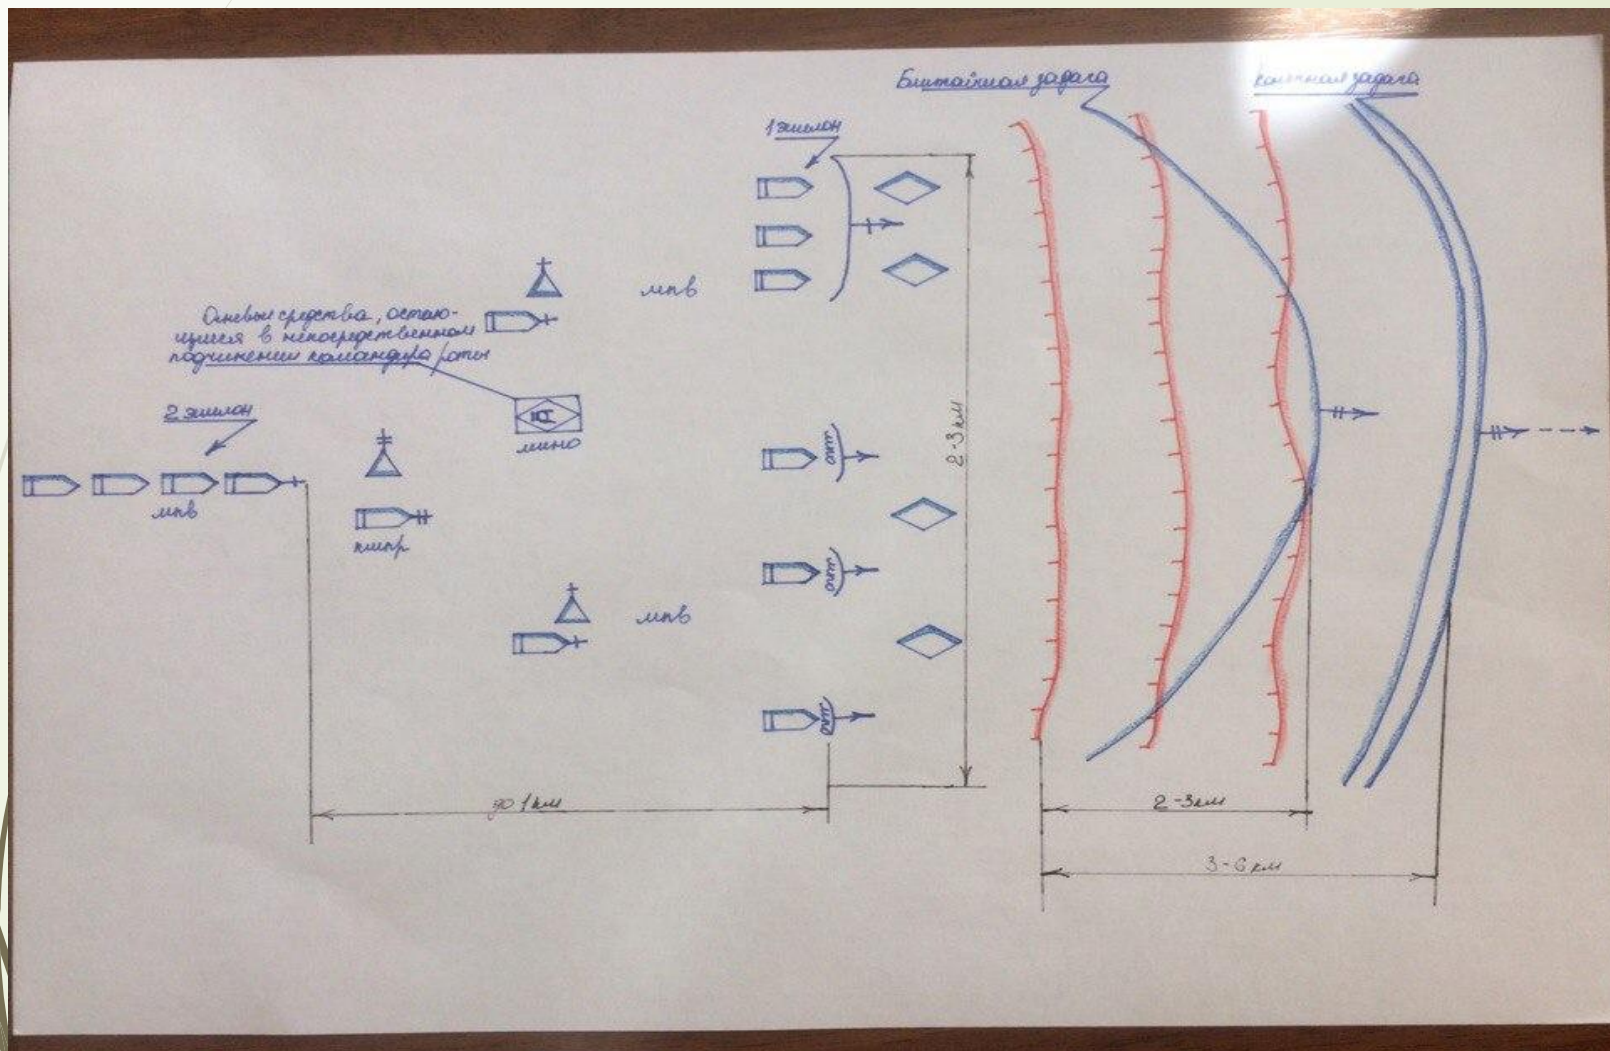 Ближайшая задача
Конечная задача
1 эшелон
мпв
Огневые средства, остаю-
щиеся в непосредственном
подчинении командира роты
2 эшелон
мино
2-3км
мпв
кшпр
мпв
до 1км
2-3км
3-6 км